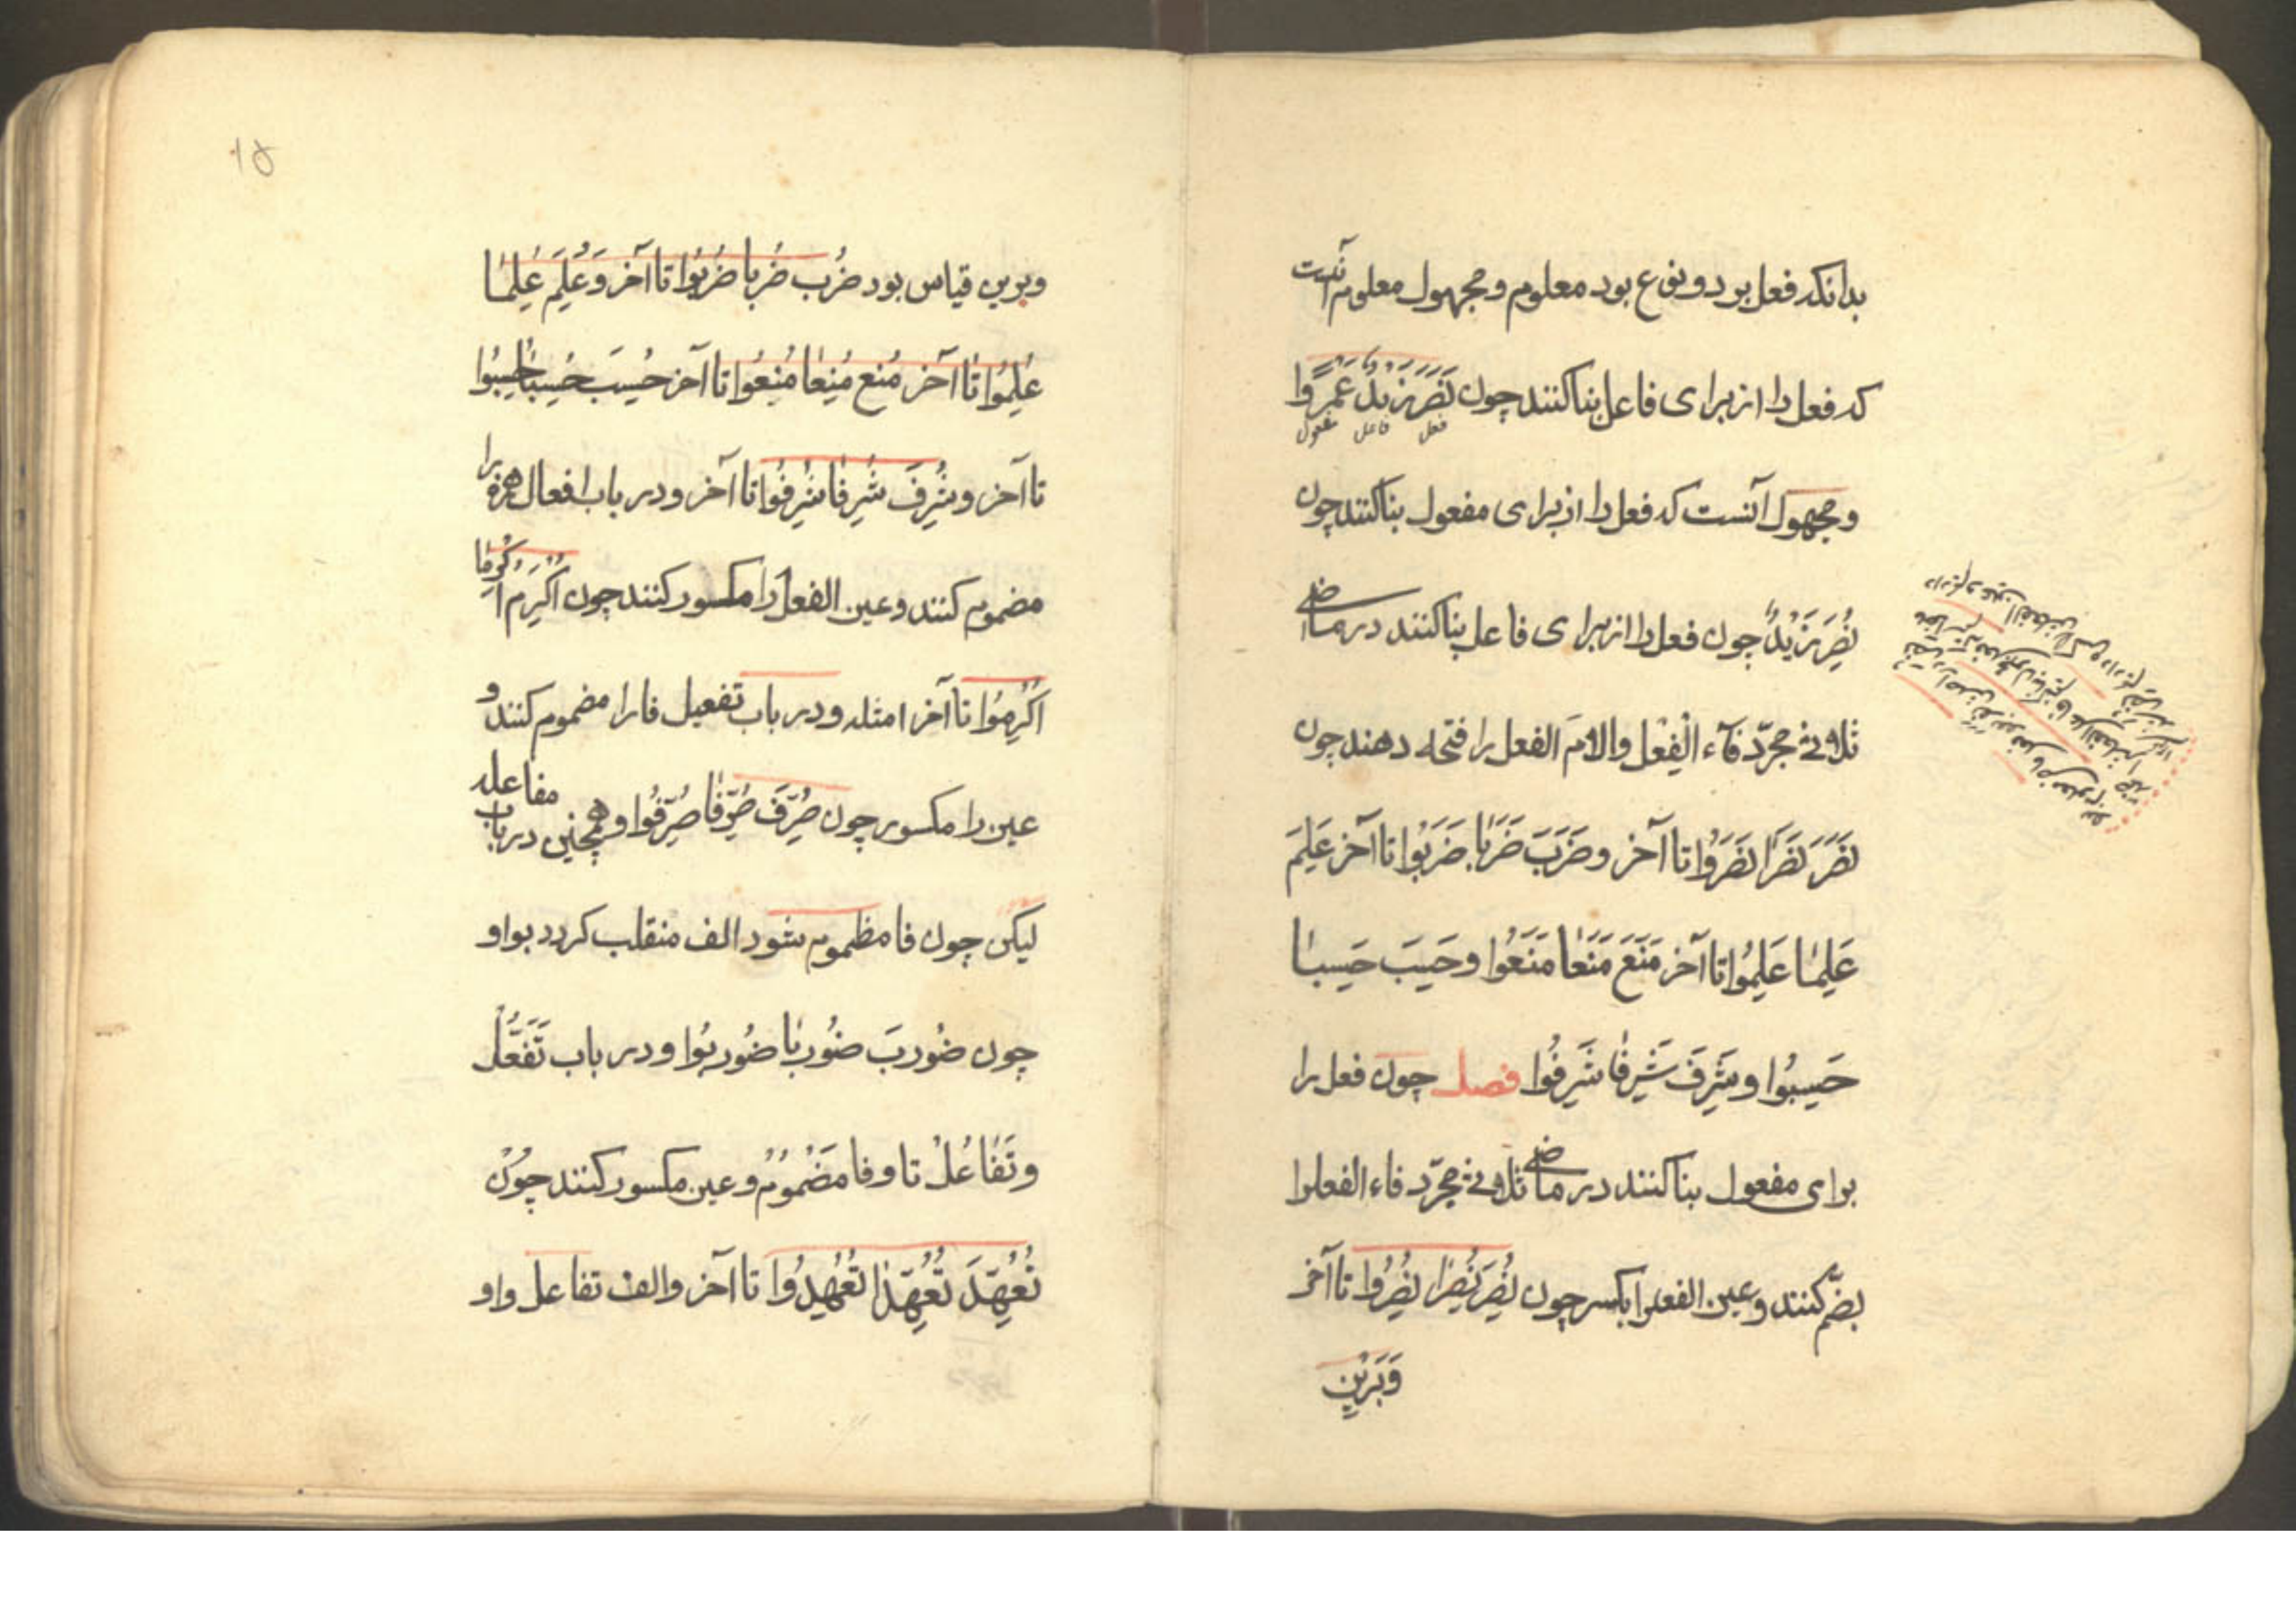 بدانکه فعل بر دو نوع بود معلوم و مجهول معلوم آنست
که فعل را از برای فاعل بنا کنند چون نَصَرَ زَیدٌ عَمرًوا
فعل فاعل مفعول
و مجهول آنست که فعل را از برای مفعول بنا کنند چون
نُصِرَ زَیْدٌ چون فعل را از برای فاعل بنا کنند در ماضی
ثلاثی مجرّد فآء الْفِعْل والامَ الفعل را فتحه دهند چون
نَصَرَ نَصَرَا نَصَرُوا تا آخر و ضَرَبَ ضَرَبَا ضَرَبُوا تا آخر عَلِمَ
عَلِمَا عَلِمُوا تا آخر مَنَعَ مَنَعَا مَنَعُوا و حَسِبَ حَسِبَا
حَسِبُوا و شَرِفَ شَرِفَا شَرِفُوا فصل چون فعل را
برای مفعول بنا کنند در ماضی ثلاثی مجرّد فاء الفعلرا
بضمّ کنند و عین الفعلرا بکسر چون نُصِرَ نُصِرَا نُصِرُوا تا آخر
وَبَرْین
١۵
و برین قیاس بود ضُرِب ضُرِبا ضُرِبُوا تا آخر وَ عُلِمَ عُلِمَا
عُلِمُوا تا آخر مُنِع مُنِعَا مُنِعُوا تا آخر حُسِبَ حُسِبَا حُسِبُوا
تا آخر و شُرِفَ شُرِفَا شُرِفُوا تا آخر و در باب افعال همزه را
مضموم کنند و عین الفعل را مکسور کنند چون اُکْرِمَ اُکْرِمَا
اُکْرِمُوا تا آخر امثله و در باب تفعیل فا را مضموم کنند و
عین را مکسور چون صُرِّفَ صُرِّفَا صُرِّفُوا و همچنین در باب مفاعله
لیکن چون فا مظموم شود الف منقلب کردد بواو
چون ضُورِبَ ضُورِبَا ضُورِبُوا و در باب تَفَعُّل
و تَفَاعُلْ تا و فا مَضْمُوم و عین مکسور کنند چُونْ
تُعُهِّدَ تُعُهِّدَا تُعُهِّدُوا تا آخر و الف تفاعل واو